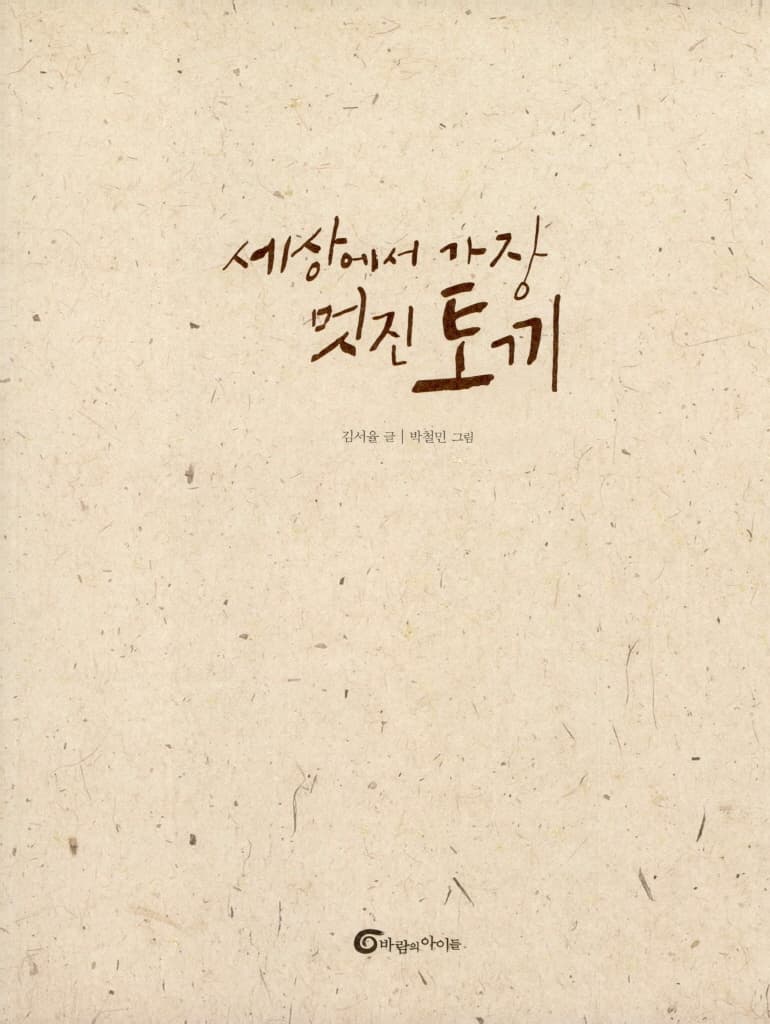 세상에서 가장
멋진 토끼
김서율 글 | 박철민 그림
바람의아이들